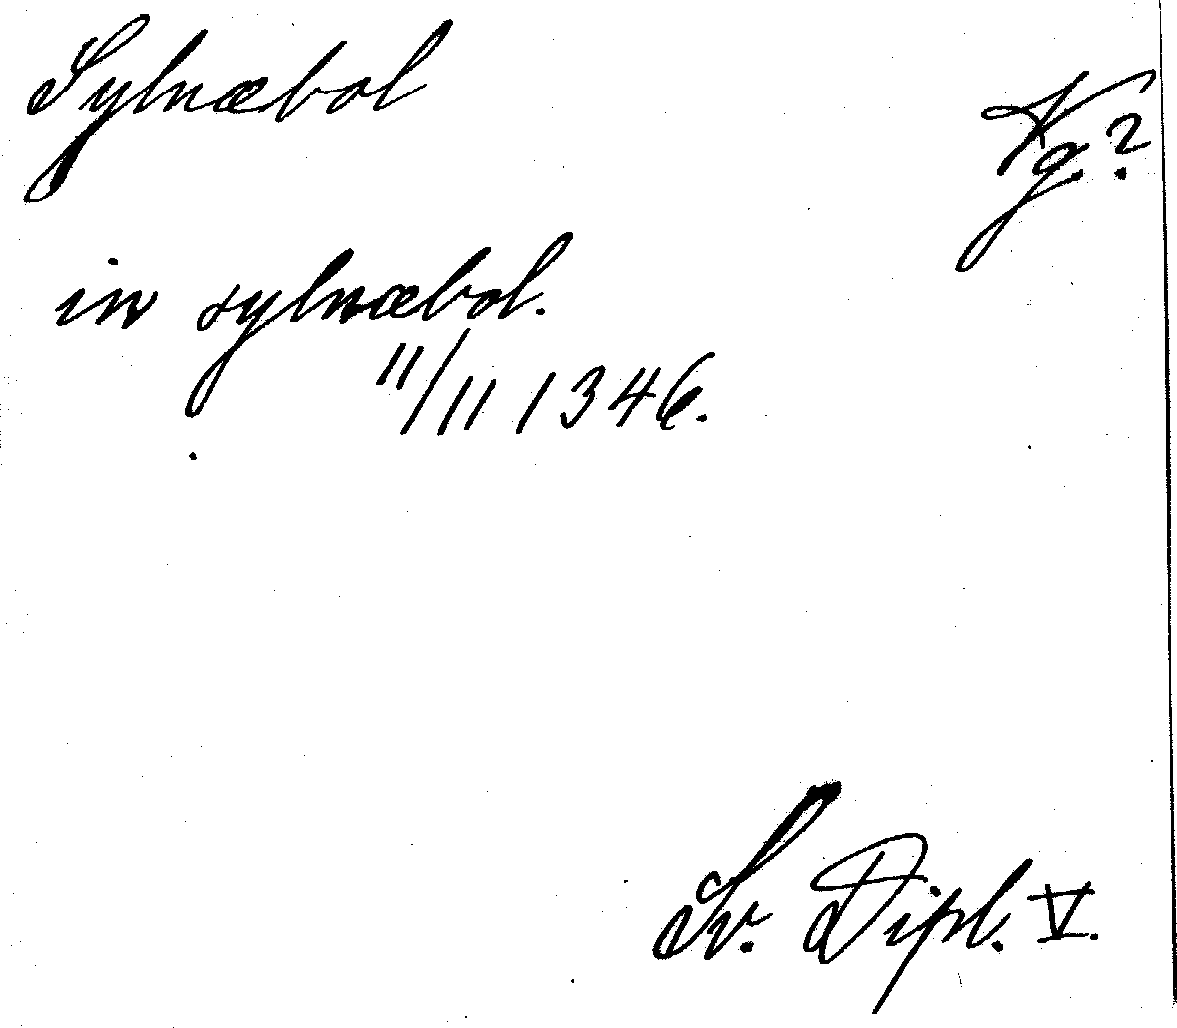 Sylnæbol
Kg.?
in sylnæbol.
11/11 1346.
Sv. Dipl. V.